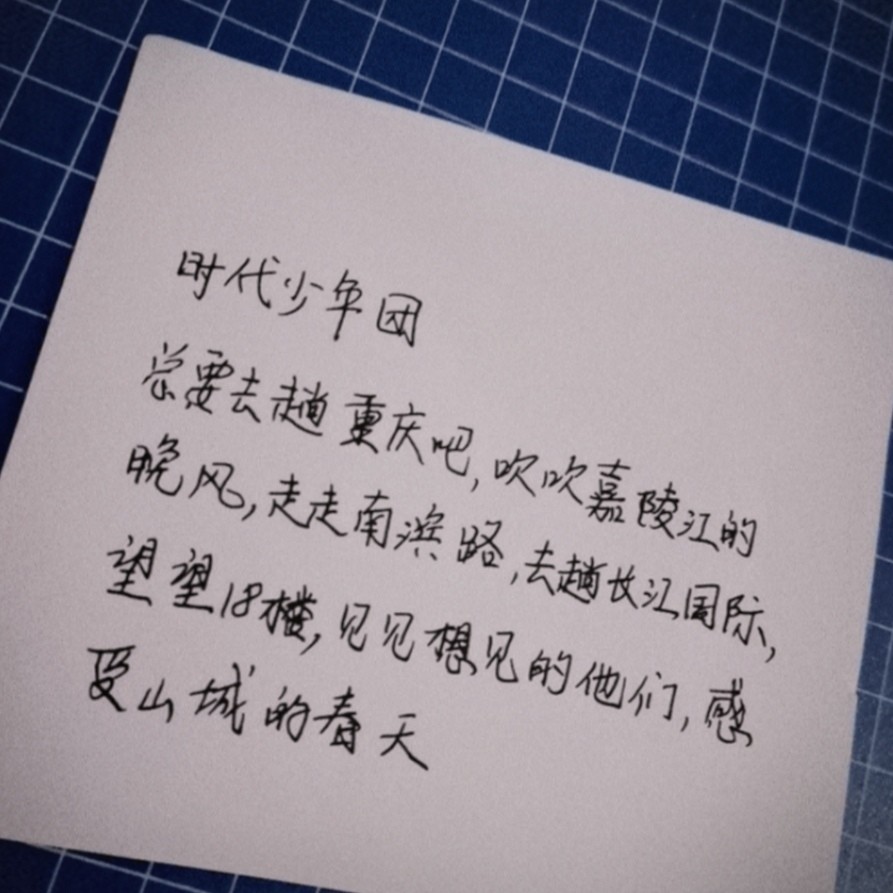 时代少年团
总要去趟重庆吧,吹吹嘉陵江的
晚风,走走南滨路,去趟长江国际,
望望18楼,见见想见的他们,感
受山城的春天